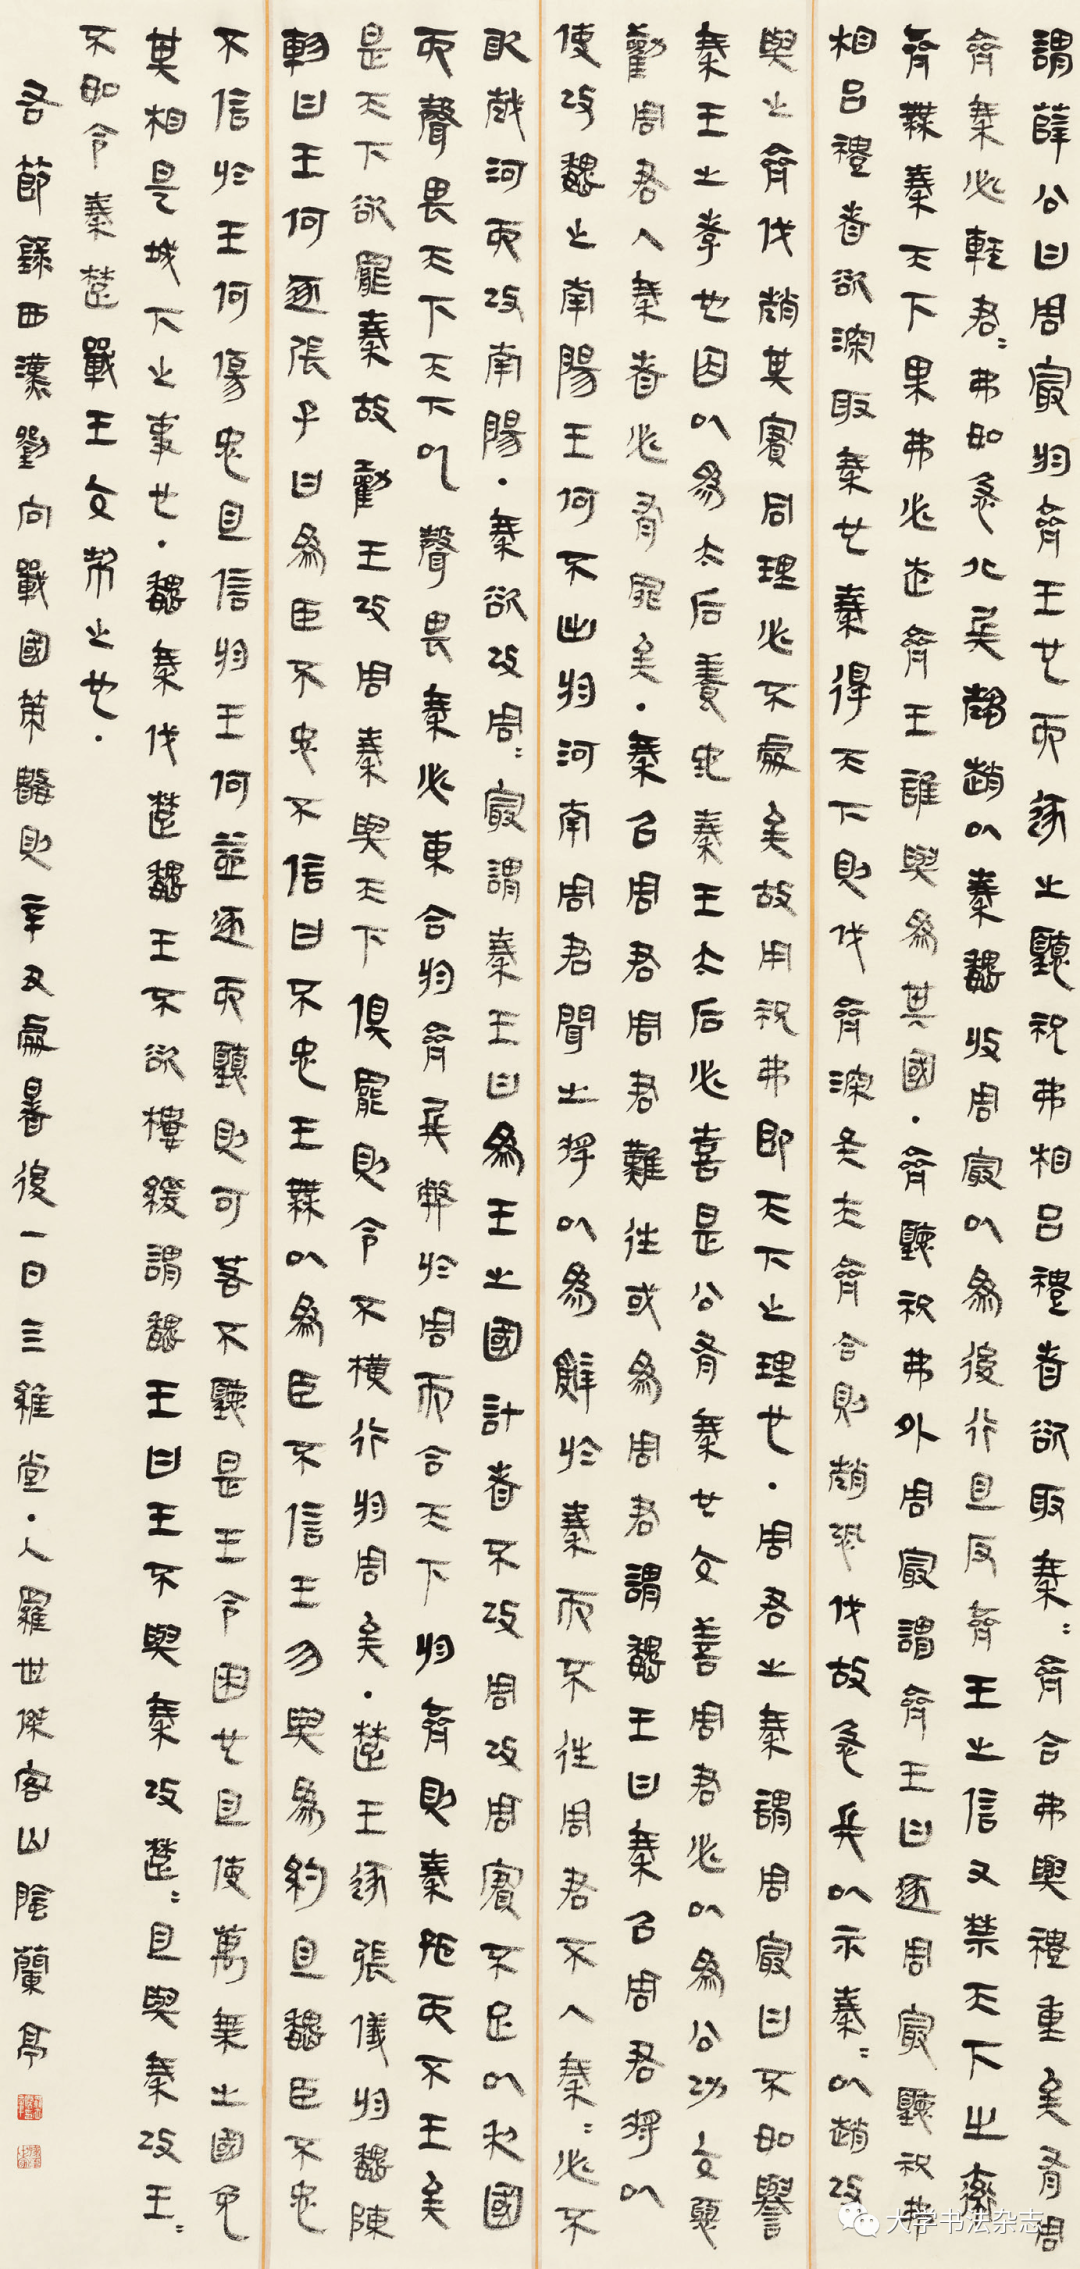 謂薛公曰周最於齊王也而逐之聽祝弗相呂禮者欲取秦=齊合弗與禮重矣有周
齊秦必輕君=弗如急北兵趨趙以秦魏收周最以爲後行且反齊王之信又禁天下之率
齊無秦天下果弗必走齊王誰與爲其國·齊聽祝弗外周最謂齊王曰逐周最聽祝弗
相呂禮者欲深取秦也秦得天下則伐齊深矣夫齊合則趙恐伐故急兵以示秦=以趙攻
與之齊伐趙其實同理必不處矣故用祝弗即天下之理也·周君之秦謂周最曰不如譽
秦王之孝也因以爲太后養地秦王太后必喜是公有秦也交善周君必以爲公功交惡
勸周君入秦者必有罪矣·秦召周君周君難往或爲周君謂魏王曰秦召周君將以
使攻魏之南陽王何不出於河南周君聞之將以爲辭於秦而不往周君不入秦=必不
敢越河而攻南陽·秦欲攻周=最謂秦王曰爲王之國計者不攻周攻周實不足以利國
而聲畏天下天下以聲畏秦必東合於齊兵弊於周而合天下於齊則秦孤而不王矣
是天下欲罷秦故勸王攻周秦與天下俱罷則令不橫行於周矣·楚王逐張儀於魏陳
軫曰王何逐張子曰爲臣不忠不信曰不忠王無以爲臣不信王勿與爲約且魏臣不忠
不信於王何傷忠且信於王何益逐而聽則可若不聽是王令困也且使萬乘之國免
其相是城下之事也·魏秦伐楚魏王不欲樓緩謂魏王曰王不與秦攻楚=且與秦攻王=
不如令秦楚戰王交制之也·
右節錄西漢劉向戰國策數則辛丑處暑後一日三維堂丶人羅世傑客山陰蘭亭
大学书法杂志